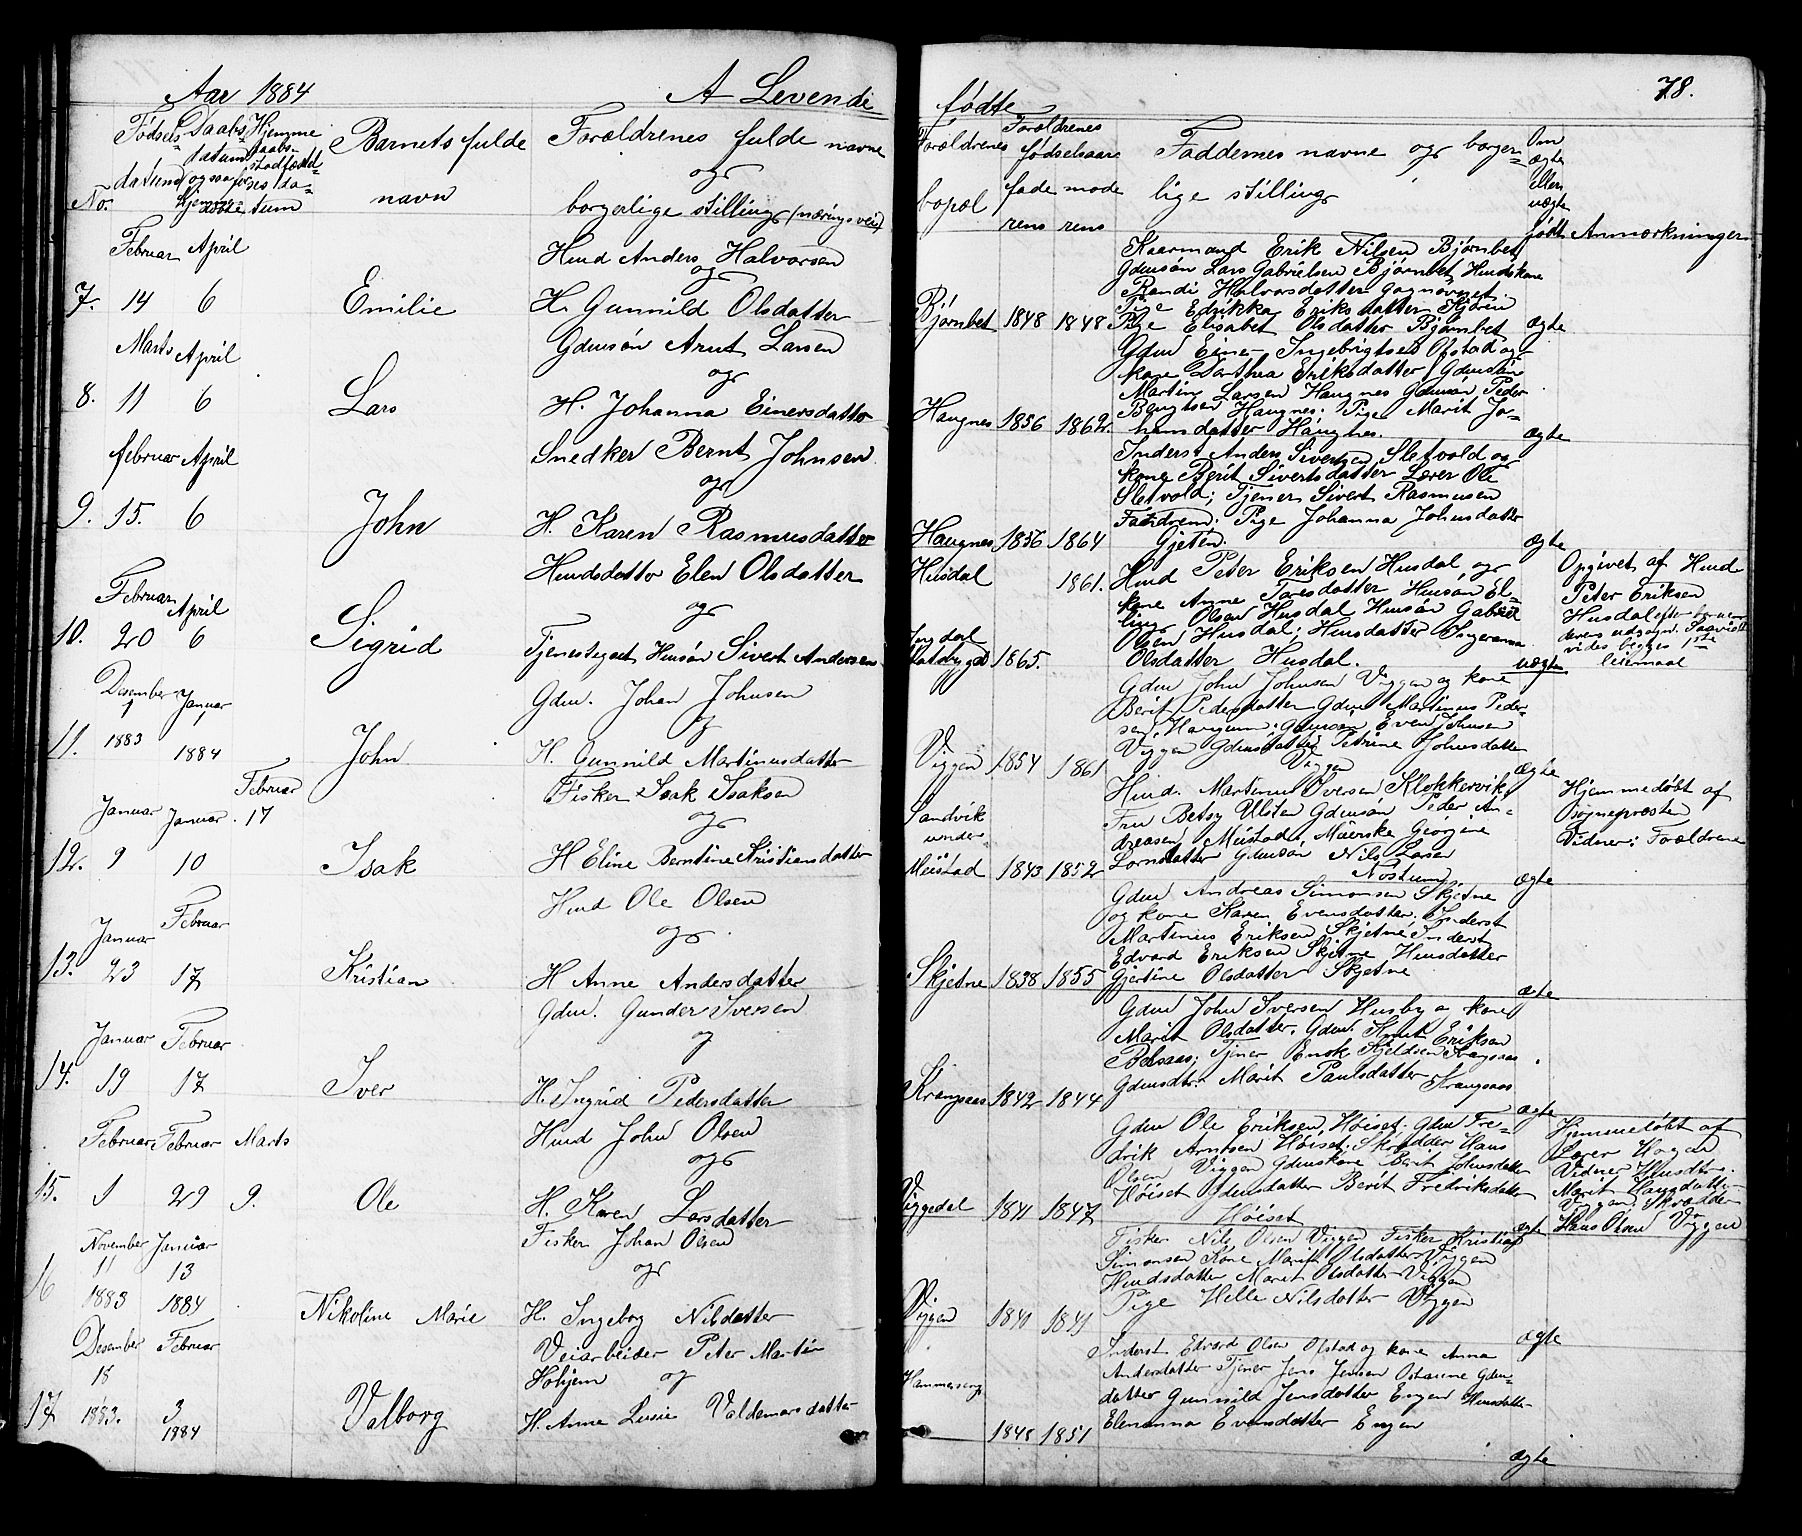 Aar 1884
A Levende
fødte
78.
No.
Fødsels datum
Daabs datum ogsaa for hjemmedøbte
Hjemme daabs stadfæstelses datum
Barnets fulde navn
Forældrenes fulde navne
og
borgerlige stilling (næringsvei)
Forældrenes bopæl
Forældrenes fødselsaar
faderens moderens
Faddernes navne og borgerlige stilling
Om ægte eller uægte født
Anmærkninger
Februar April
7. 14 6 Emilie
Husmd Anders Halvorsen
og
H. Gunnild Olsdatter
Bjørnbet 1848 1848
Kaarmand Erik Nilsen Bjørnbet
Gdmsøn Lars Gabrielsen Bjørnbet, Husmdskone
Randi Halvorsdatter
Pige Edrikka Eriksdatter
Pige Elisabet Olsdatter Bjørnbet
ægte
Marts April
8. 11 6 Lars
Gdmsøn Arnt Larsen
og
H. Johanna Einersdatter
Haugnes 1856 1862.
Gdm Einer Ingebrigtsen Ofstad og
kone Dorthea Eriksdatter, Gdmsøn
Martin Larsen Haugnes Gdmsøn Peder
Bengtsen Haugnes. Pige Marit Jo-
hansdatter Haugnes.
ægte
februar April
9. 15. 6 John
Snedker Bernt Johnsen
og
H. Karen Rasmusdatter
Haugnes 1856 1864
Inderst Anders Sivertsen Sletvold og
kone Berit Sivertsdatter Lærer Ole
Sletvold; Tjener Sivert Rasmusen
Fandrem. Pige Johanna Johnsdatter
Gjeten.
ægte
Februar April
10. 20 6 Sigrid
Husmdsdatter Elen Olsdatter
og
Tjenestegut Husmsøn Sivert Andersen
Husdal 1861.
1865.
Husmd Peter Eriksen Husdal og
kone Anne Toresdatter Husmsøn El-
ling Olsen Husdal Husmsøn Gabriel
Olsen Husdal; Husmdatter
Olsdatter Husdal.
uægte
Opgivet af Husmd
Peter Eriksen
Husdal efter
udsagn. Saavidt
vides begges 1ste
leiermaal
Desember Januar
11. 1 1
1883 1884 John
Gdm. Johan Johnsen
og
H. Gunnild Martinusdatter
Viggen 1854 1861
Gdm John Johnsen Viggen og kone
Berit Pedersdatter Gdm Martinus Peder-
sen, Gdmsøn Even Johnsen
Viggen Gdmsdatter Petrine Johnsdatter
Viggen
ægte
Januar Januar Februar
12. 9 10 17 Isak
Fisker Isak Isaksen
og
H Eline Berntine Kristiansdatter
Sandvik under Mustad 1843 1852
Husmd. Martinus Iversen Klokkervik,
Fru Betsy Ulsten Gdmsøn Peder An-
dreasen Mustad, Georgine
Gdmsøn Nils Larsen
ægte
Hjemmedøbt af
Sognepræsten
Vidner: Forældrene
Januar Februar
13. 23 17 Kristian
Husmd Ole Olsen
og
H Anne Andersdatter
Skjetne 1838 1855
Gdm Andreas Simonsen Skjetne
og kone Karen Evensdatter. Inderst
Martinus Eriksen Skjetne Inderst
Edvard Eriksen Skjetne Husmdatter
Gjertine Olsdatter Skjetne
ægte
Januar Februar
14. 19 17 Iver
Gdm. Gunder Iversen
og
H. Ingrid Pedersdatter
Krangsaas 1842 1844
Gdm John Iversen Husby og kone
Marit Olsdatter. Gdm. Eriksen
Tjener Enok Kjeldsen Krangsaas
Gdmsdtr. Marit Paulsdatter Krangsaas
ægte
Februar Februar Marts
15. 1 29 9. Ole
Husmd John Olsen
og
H. Karen Larsdatter
Viggedal 1841 1847
Gdm Ole Eriksen, Høiset. Gdm Fre-
drik Arntsen Høiset. Skrædder Hans
Olsen Viggen Gdmskone Berit Johnsdatter
Høiset Gdmsdatter Berit Fredriksdatter
Høiset
ægte
Hjemmedøbt af
Lærer Hagen
Vidner Husmdtr.
Marit
Viggen, Skrædder
Hans Olsen Viggen
November Januar
16 11 13
1883 1884 Nikoline Marie
Fisker Johan Olsen
og
H. Ingebog Nilsdatter
Viggen 1840 1841
Fisker Nils Olsen Viggen Fisker Kristian
Simonsen Kone Marit Olsdatter Viggen
Husmdsdatter Marit Olsdatter Viggen
Pige Helle Nilsdatter Viggen
ægte
Desember Februar
17 18 3
1883. 1884 Valborg
Veiarbeider Peter Martin
Hohjem og
H. Anne Lusie Valdemarsdatter
1848 1851
Inderst Edvard Olsen Ofstad og kone Anna
Andersdatter Tjener Jens Jensen Gdm-
datter Gunnild Jensdatter Engen Husmdatter
Elenanna Evensdatter Engen
ægte